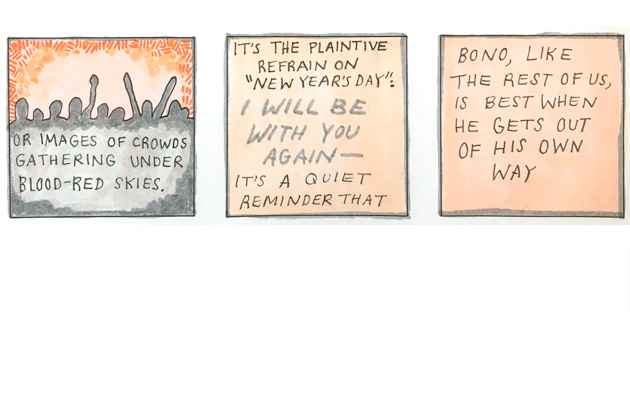 OR IMAGES OF CROWDS
GATHERING UNDER
BLOOD-RED SKIES.
IT'S THE PLAINTIVE
REFRAIN ON
"NEW YEAR'S DAY":
I WILL BE
WITH YOU
AGAIN—
IT'S A QUIET
REMINDER THAT
BONO, LIKE
THE REST OF US,
IS BEST WHEN
HE GETS OUT
OF HIS OWN
WAY